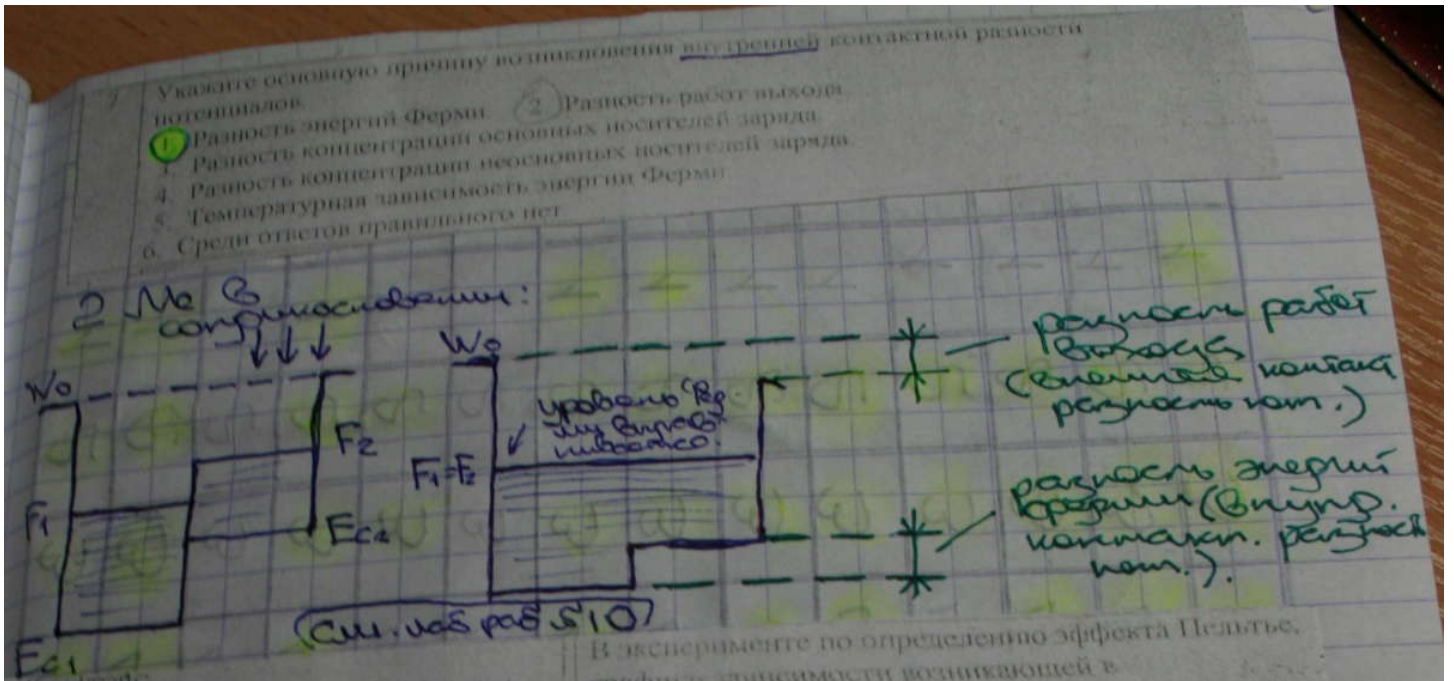 7
Укажите основную причину возникновения внутренней контактной разности
потенциалов.
1. Разность энергий Ферми. 2. Разность работ выхода.
3. Разность концентрации основных носителей заряда.
4. Разность концентрации неосновных носителей заряда.
5. Температурная зависимость энергии Ферми
6. Среди ответов правильного нет
2 Me в
соприкосновении:
W₀
F₁
F₂
Ec₂
Ec₁
W₀
уровень
F₁=F₂
разность работ
выхода
(внешняя контакт
разность пот.)
разность энергий
Ферми (внутр.
контакт. разность
пот.).
(см. лаб раб 510)
В эксперименте по определению эффекта Пельтье,
зависимости возникающей в